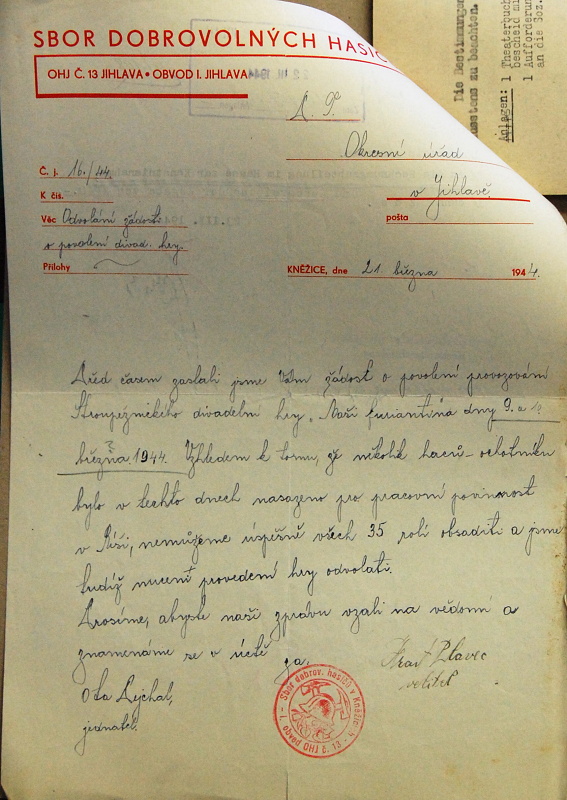 SBOR DOBROVOLNÝCH HASIČ
OHJ Č. 13 JIHLAVA • OBVOD I. JIHLAVA
Okresní úřad
v Jihlavě.
pošta
Č. j. 16./44.
K čís.
Věc Odvolání žádosti
o povolení divad. hry.
Přílohy
KNĚŽICE, dne 21 března 1944.
Před časem zaslali jsme Vám žádost o povolení provozování
Stroupežnického divadelní hry „Naši furianti" na dny 9. a
března 1944. Vzhledem k tomu, že několik herců-ochotníků
bylo v těchto dnech nasazeno pro pracovní povinnost
v Říši, nemůžeme úspěšně všech 35 rolí obsaditi a jsme
tudíž nuceni provedení hry odvolati.
Prosíme, abyste naši zprávu vzali na vědomí a
znamenáme se v úctě
za,
Ota Rychal,
jednatel.
velitel
Sbor dobrov. hasičů v Kněžicích
OHJ č. 13
Die Bestimmungen
zu beachten.
Anlagen: 1 Theaterbuch
bescheid mi
1 Aufforderung
an die Soz.